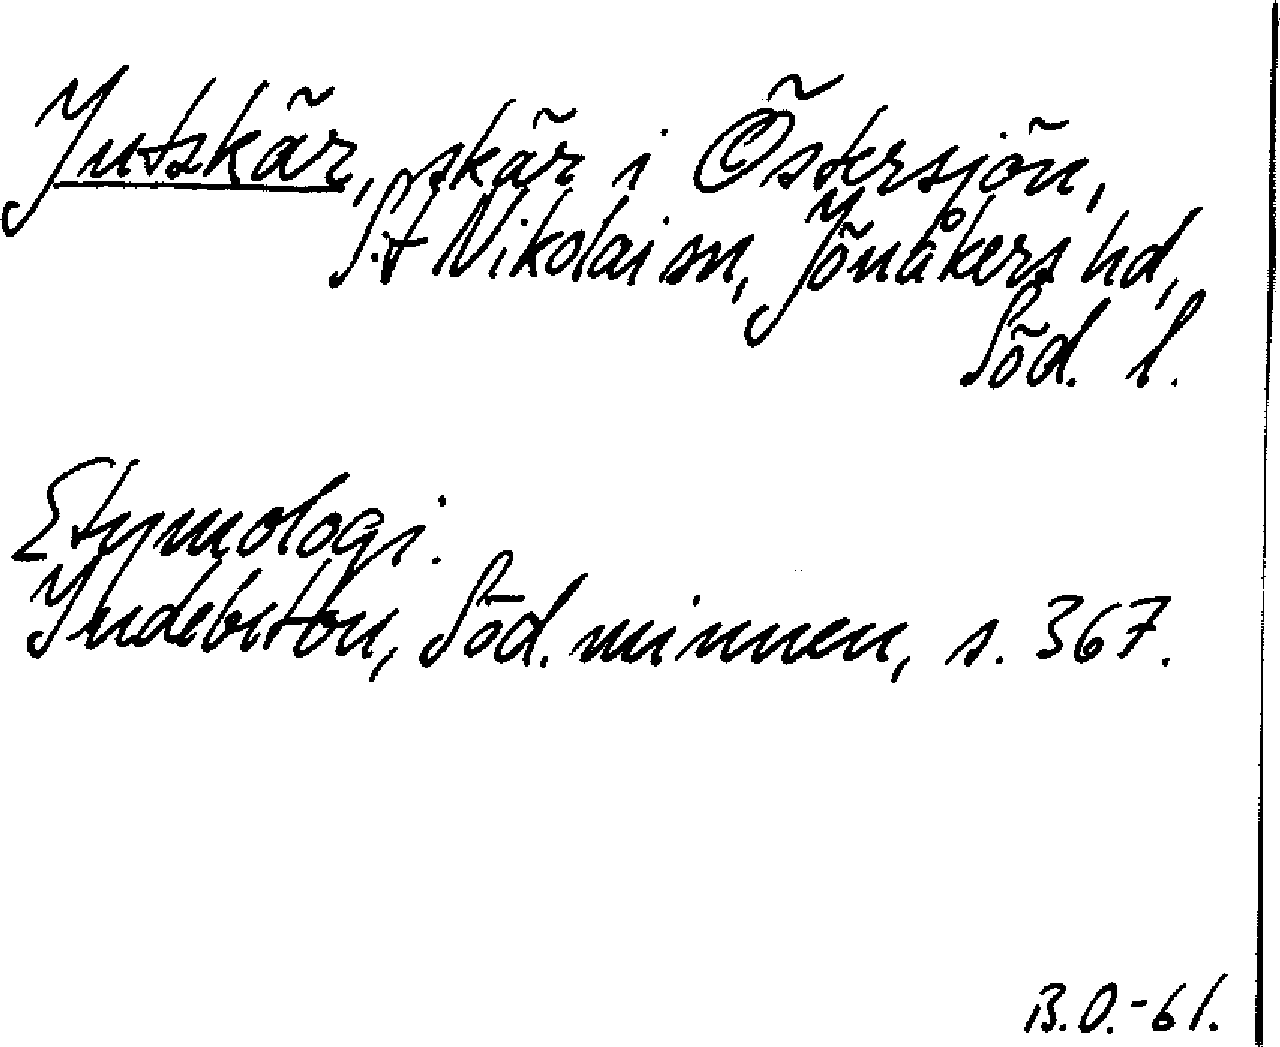 Jutskär, skär i Östersjön,
S:t Nikolai sn, Jönåkers hd,
Söd. l.
Etymologi.
Indebetou, Söd. minnen, s. 367.
B.O.-61.